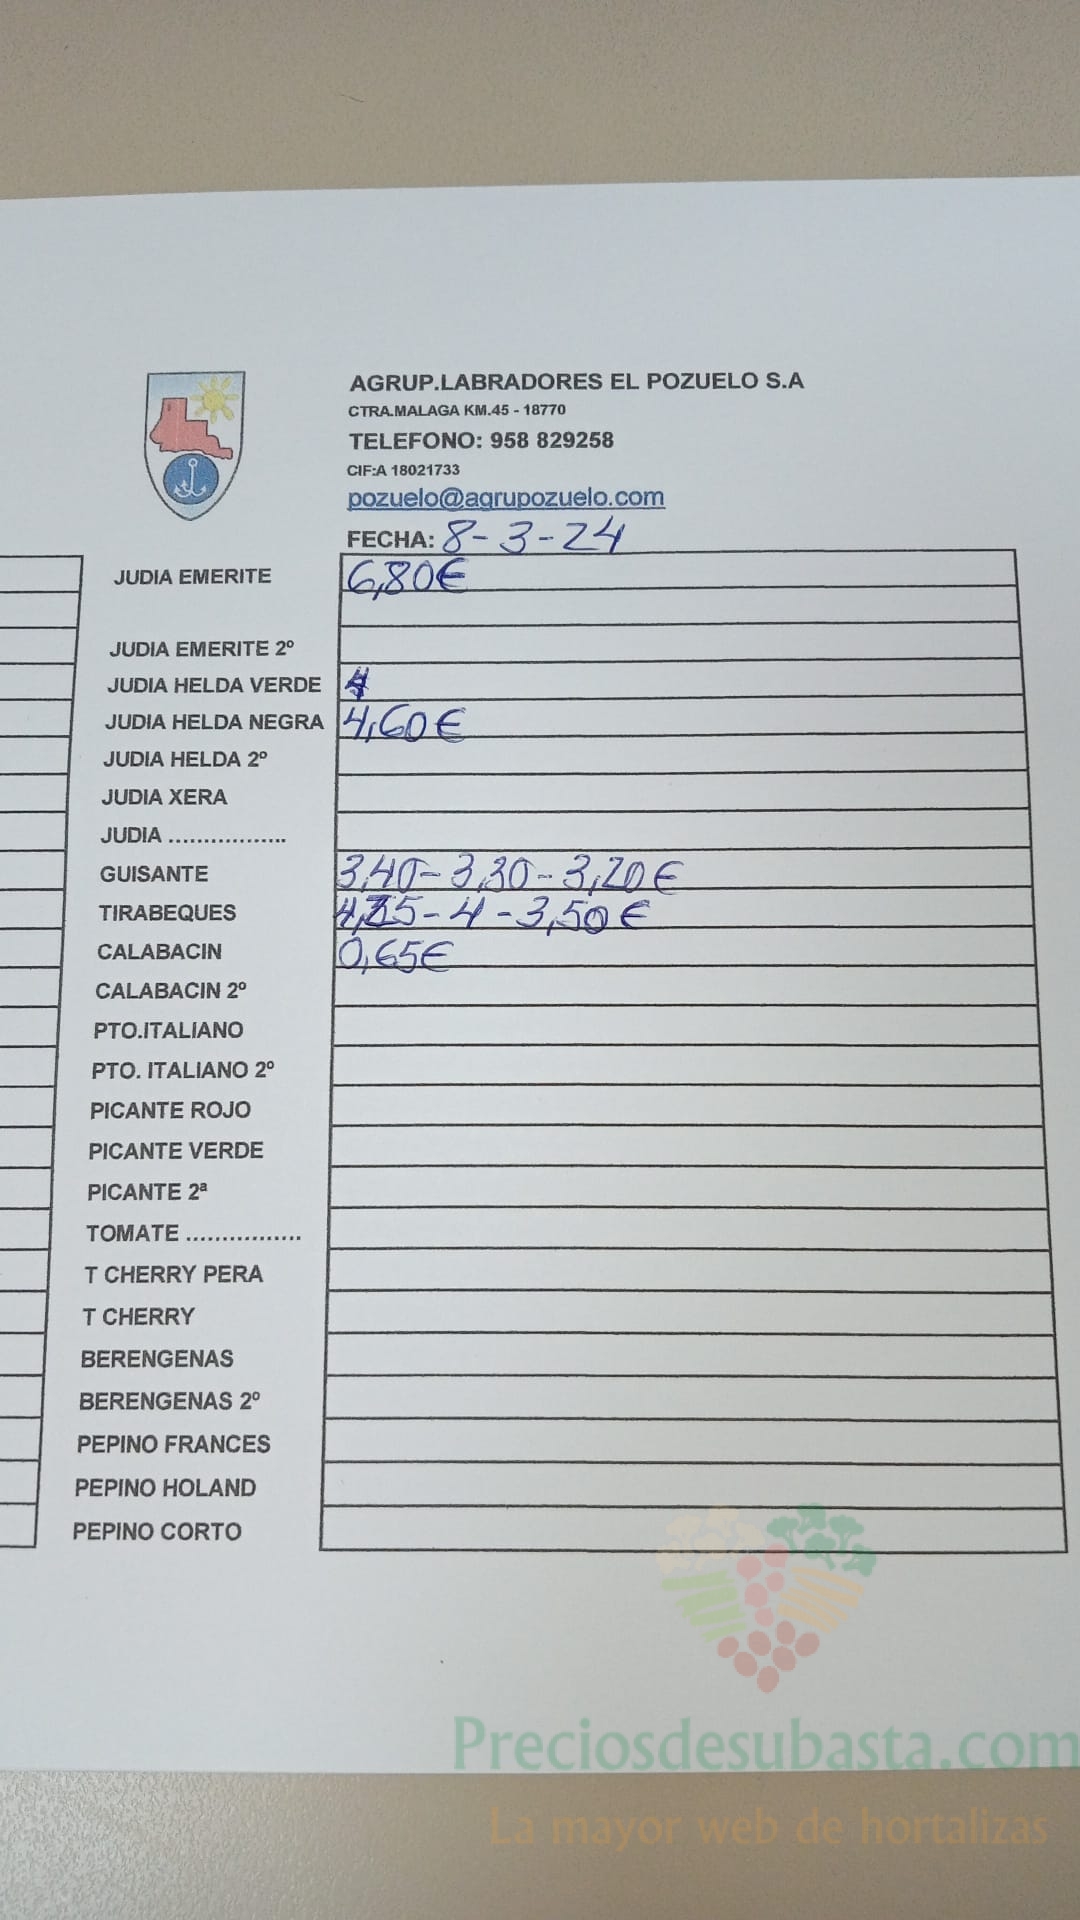 AGRUP.LABRADORES EL POZUELO S.A
CTRA.MALAGA KM.45 - 18770
TELEFONO: 958 829258
CIF:A 18021733
pozuelo@agrupozuelo.com
FECHA: 8-3-24
JUDIA EMERITE 6,80€
JUDIA EMERITE 2º
JUDIA HELDA VERDE
JUDIA HELDA NEGRA 4,60€
JUDIA HELDA 2º
JUDIA XERA
JUDIA .................
GUISANTE 3,40-3,30-3,20€
TIRABEQUES - 4 - 3,50€
CALABACIN 0,65€
CALABACIN 2º
PTO.ITALIANO
PTO. ITALIANO 2º
PICANTE ROJO
PICANTE VERDE
PICANTE 2ª
TOMATE ................
T CHERRY PERA
T CHERRY
BERENGENAS
BERENGENAS 2º
PEPINO FRANCES
PEPINO HOLAND
PEPINO CORTO
Preciosdesubasta.com
La mayor web de hortalizas